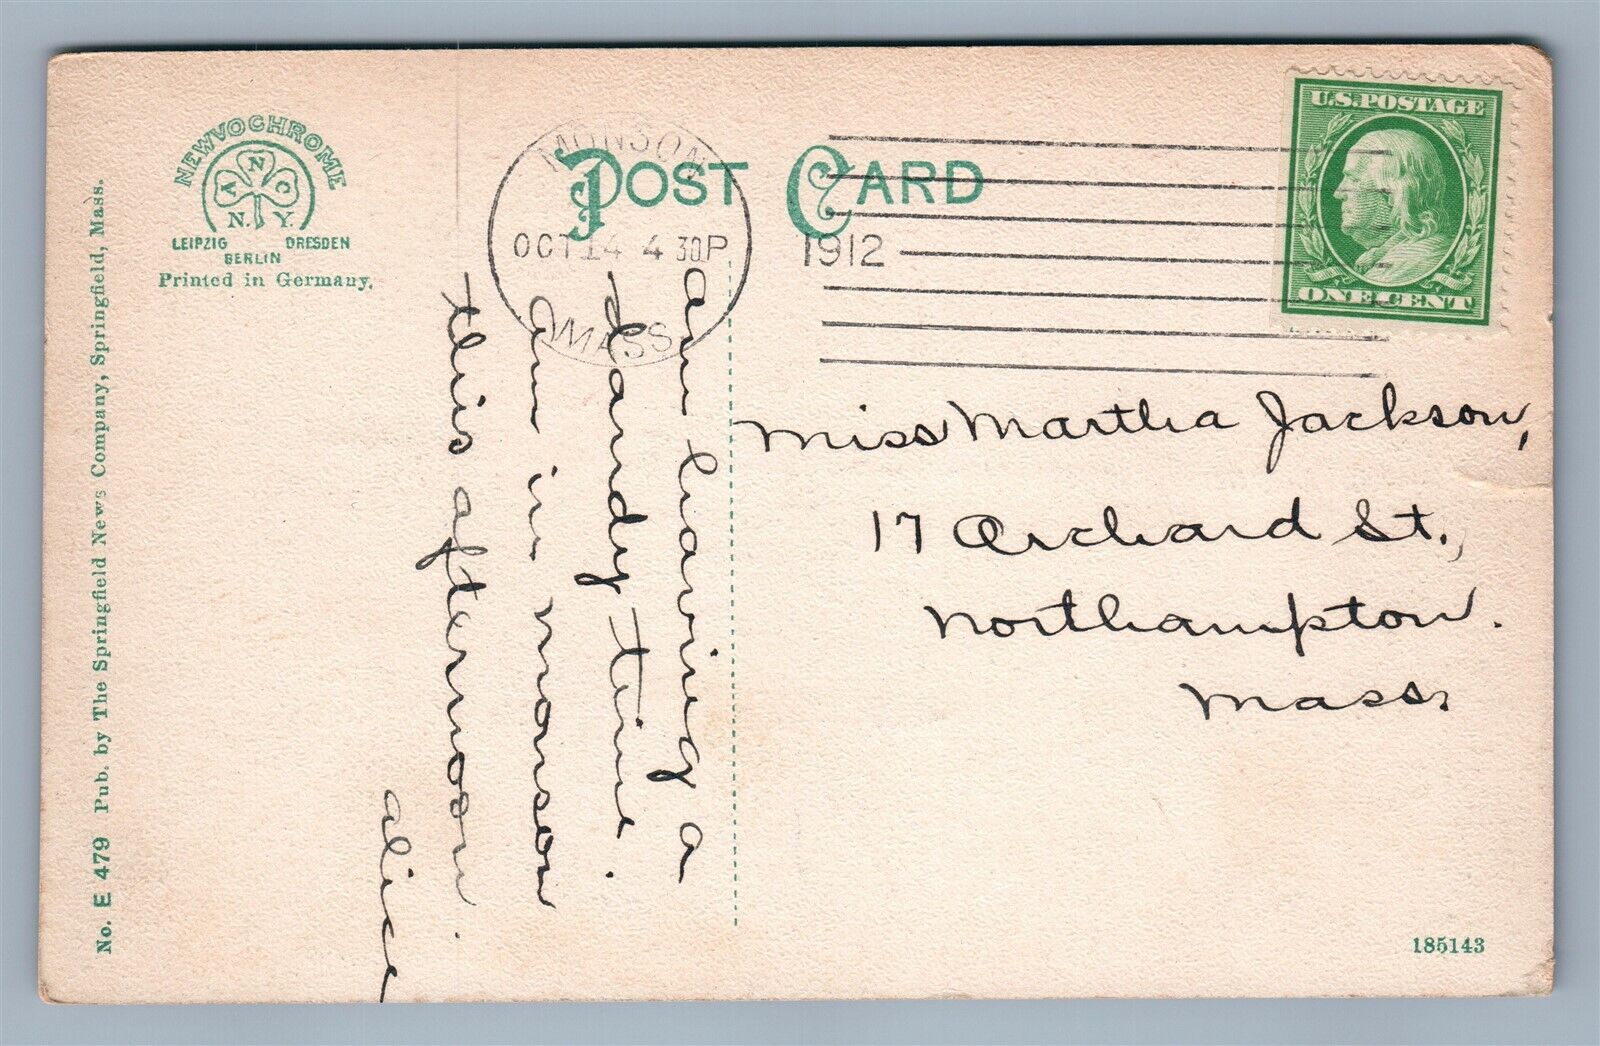 NEWVOCHROME
A N C
N. Y.
LEIPZIG DRESDEN
BERLIN
Printed in Germany.
No. E 479 Pub. by The Springfield News Company, Springfield, Mass.
POST CARD
MONSON
OCT 14 4 30P
MASS.
1912
U.S. POSTAGE
ONE CENT
am having a
dandy time.
am in monson
this afternoon.
alice
Miss Martha Jackson,
17 Orchard St.,
Northampton.
Mass.
185143